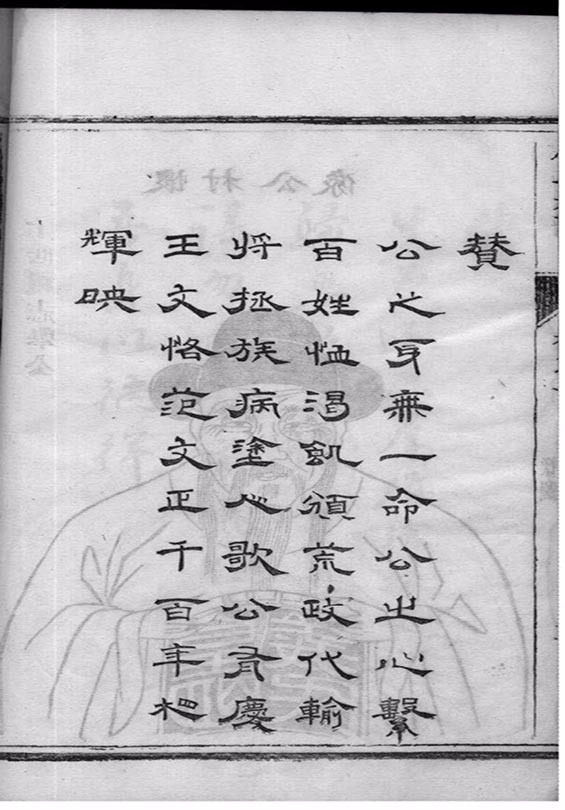 贊
公之身無一命公之心繫
百姓恤渴飢頒荒政代輸
将拯族病塗歌公有慶
王文恪范文正千百年相
輝映